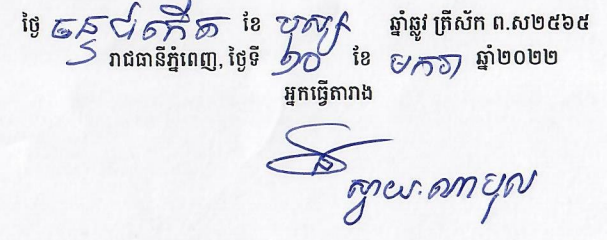 ថ្ងៃ ចន្ទ ៨កើត ខែ បុស្ស ឆ្នាំឆ្លូវ ត្រីស័ក ព.ស២៥៦៥
រាជធានីភ្នំពេញ, ថ្ងៃទី ១០ ខែ មករា ឆ្នាំ២០២២
អ្នកធ្វើតារាង
ស្វាយ ណាបុល